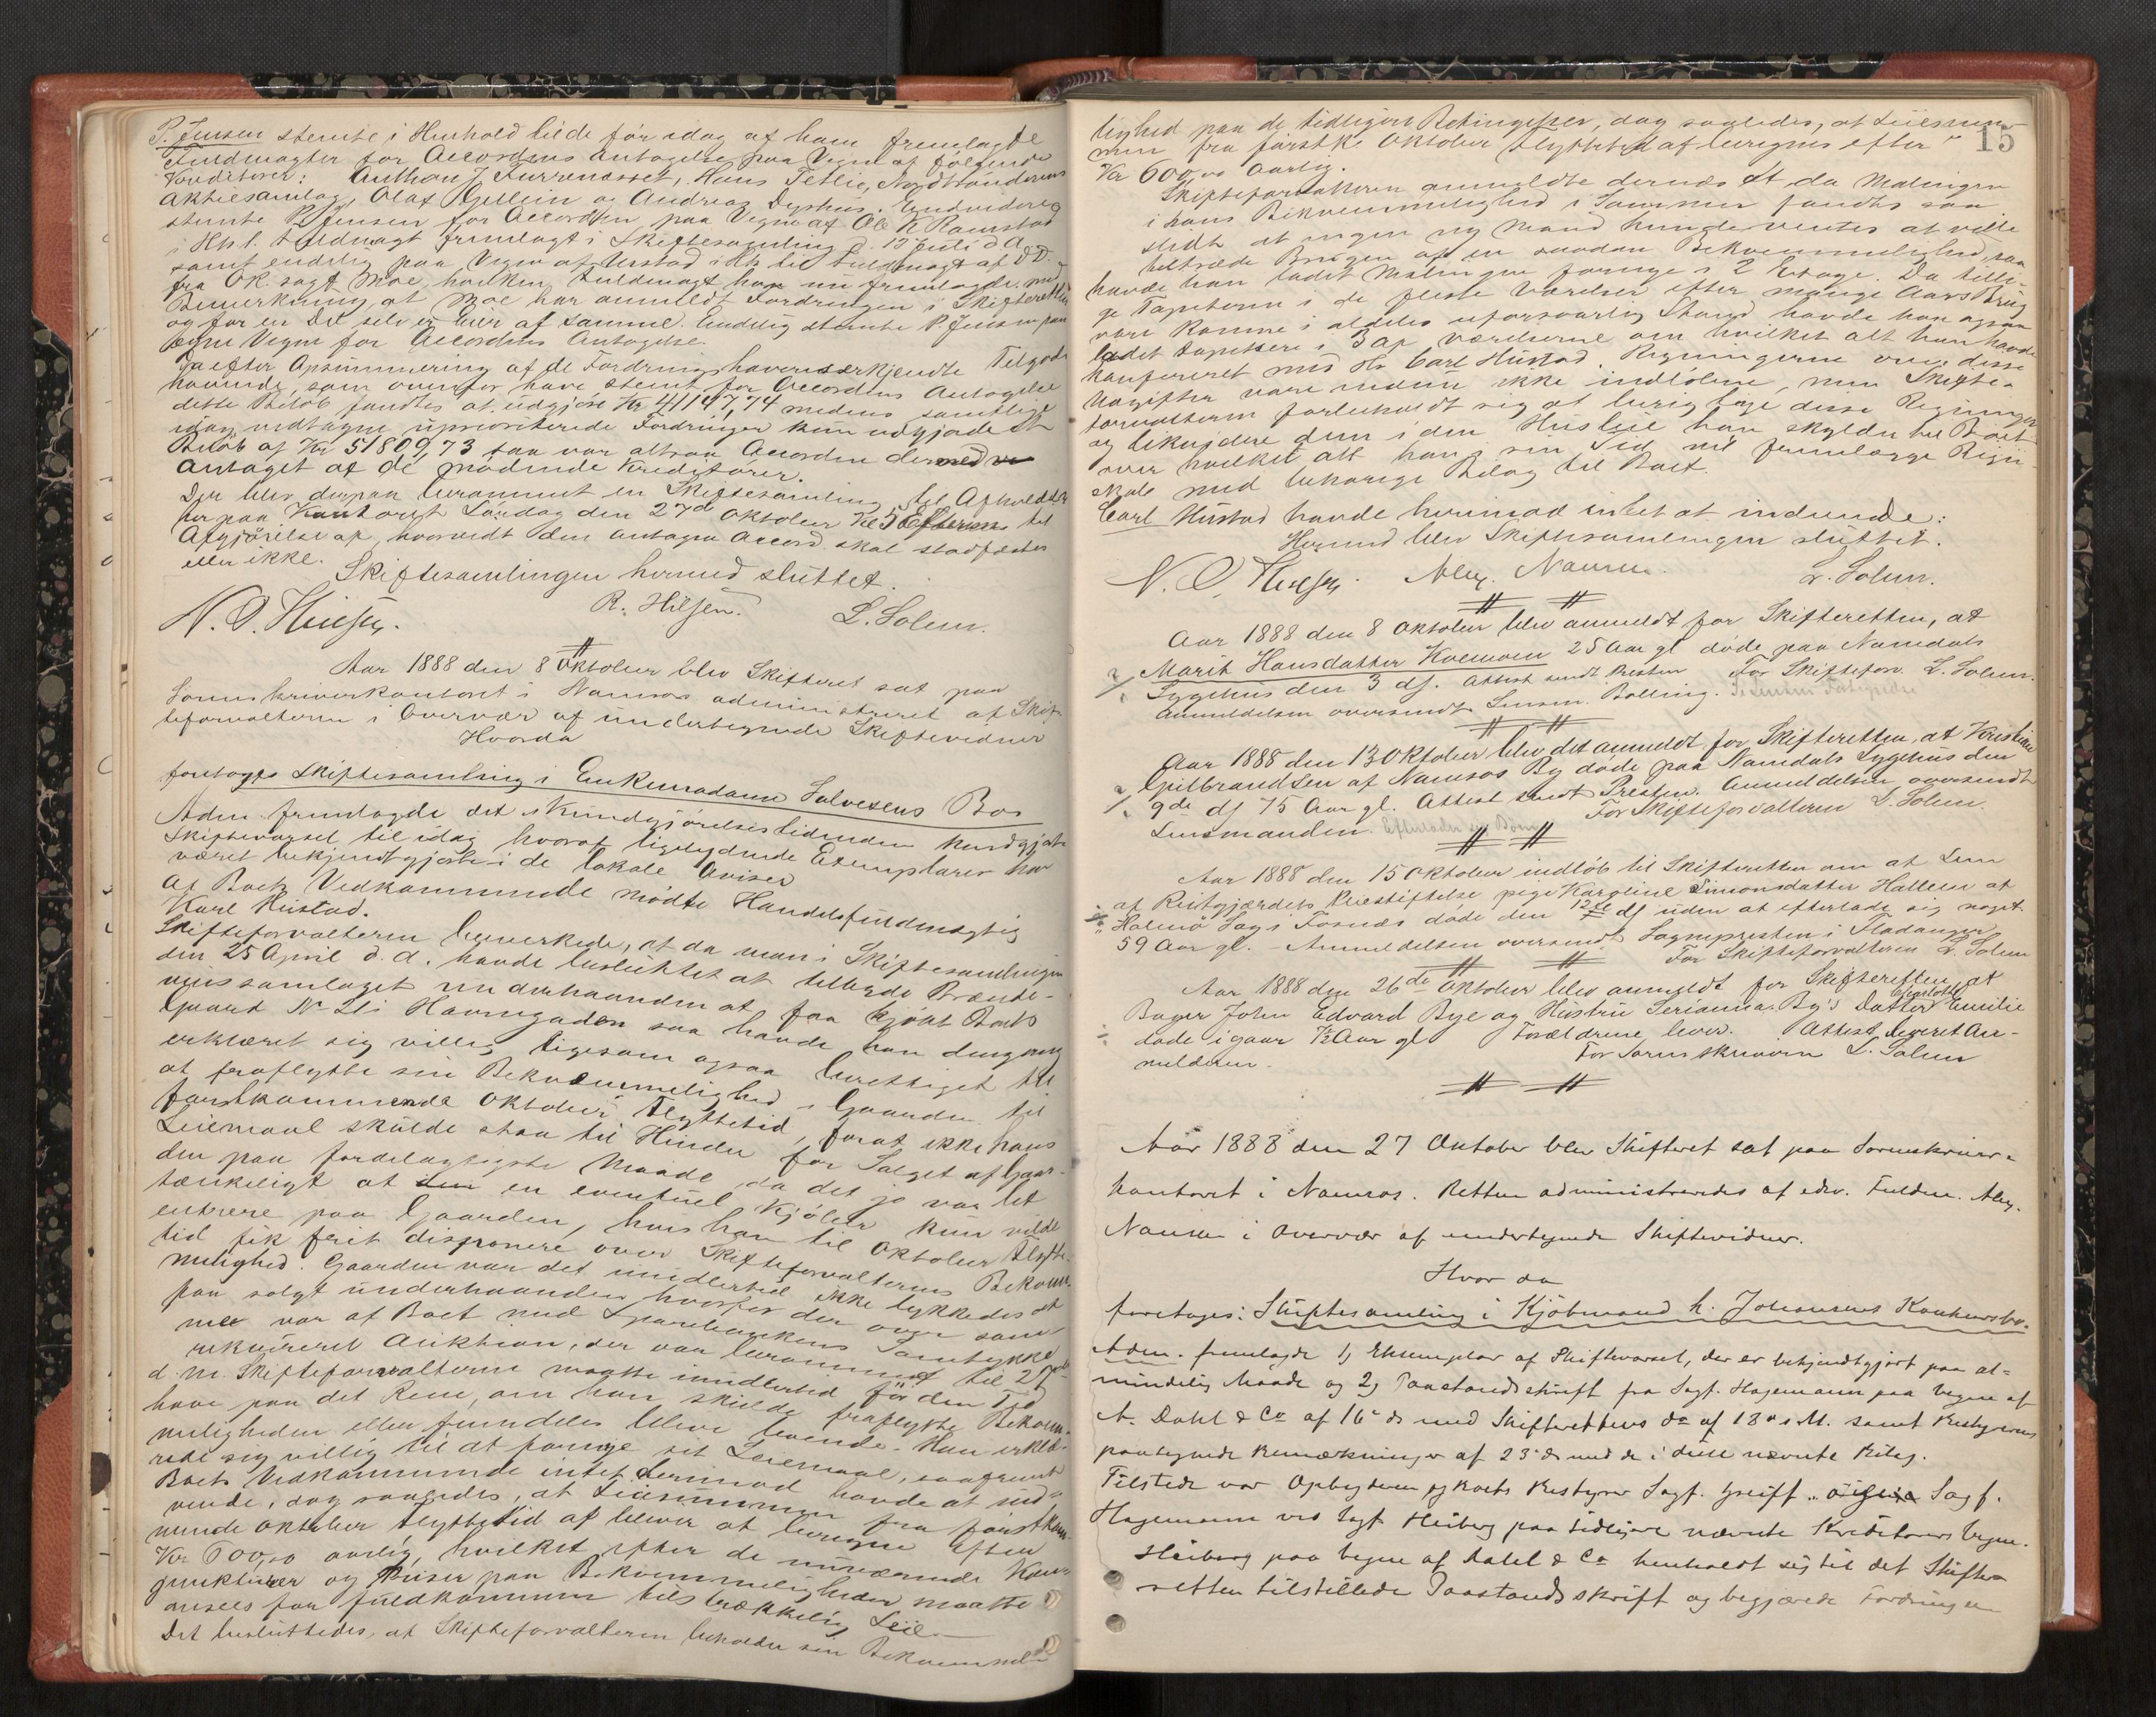 P. Jensen stemte i Henhold til de før idag af ham fremlagte
Fuldmagter for Accordens Antagelse paa Vegne af følgende
Kreditorer: Anthon J Furrenæsset, Hans Tetlie, Nordtrønderens
Aktiesamlag, Olaf Gullein og Andreas Dyshus. Endvidere
stemte P. Jensen for Accorden paa Vegne af Ole K Ramstad
i Hht. Fuldmagt fremlagt i Skiftesamling d. 12 Juli d. A.
samt endelig paa Vegne af Ulstad ifølge til Fuldmagt af D.D.
fra OK. sagf Moe, hvilken Fuldmagt han nu fremlagde med
Bemerkning, at Moe har anmeldt Fordringen i Skifteretten
og for en Del selv er Eier af samme. Endelig stemte P. Jensen paa
egne Vegne for Accordens Antagelse.
Da efter Opsummering af de Fordringshaveres erkjendte Tilgode
havende, som ovenfor have stemt for Accordens Antagelse
dette Beløb fandtes at udgjøre Kr 41147,74 medens samtlige
idag vedtagne uprioriterede Fordringer kun udgjorde et
Beløb af Kr 51809,73 saa var altsaa Accorden dermed
antaget af de mødende Kreditorer.
Der blev derpaa berammet en Skiftesamling til Afholdelse
her paa Kontoret Lørdag den 27de Oktober Kl 5 Efterm til
Afgjørelse af, hvorvidt den antagne Accord skal stadfæstes
eller ikke.
Skiftesamlingen hermed sluttet.
R. Hilsen. L. Solem.
Aar 1888 den 8 Oktober blev Skifteret sat paa
Sorenskriverkontoret i Namsos administreret af Skif-
teforvalteren i Overvær af undertegnede Skiftevidner
Hvorda
foretoges Skiftesamling i Enkemadame Salvesens Bo
Adm. fremlagde det i Kundgjørelsestidenden kundgjorte
Skiftevarsel til idag hvoraf ligelydende Exemplarer har
været bekjendtgjorte i de lokale Aviser
Af Boets Vedkommende mødte Handelsfuldmægtig
Karl Hustad.
Skifteforvalteren bemerkede, at da man i Skiftesamlingen
den 25 April d. A. havde besluttet at tilbyde Brænde-
vinssamlaget underhaanden at faa kjøbt Boets
Gaard No 21 i Havnegaden saa havde han dengang
erklæret sig villig ligesom ogsaa berettiget til
at fraflytte sin Bekvemmelighed i Gaarden til
førstkommende Oktober Flyttetid, forat ikke hans
Leiemaal skulde staa til Hinder for Salget af Gaar-
den paa fordelagtigste Maade, da det jo var let
tænkeligt at en eventuel Kjøber kun vilde
entrere paa Gaarden, hvis han til Oktober Flytte-
tid fik frit disponere over Skifteforvalterens Bekvem-
melighed. Gaarden var det imidlertid ikke lykkedes at
faa solgt underhaanden hvorfor der over sam-
me var af Boet med Sparebankens Samtykke
rekvireret Auktion, der var berammet til 27de
d. M. Skifteforvalteren maatte imidlertid før den Tid
have paa det Rene, om han skulde fraflytte Bekvem-
meligheden eller fremdeles blive boende. Han erklæ-
rede sig villig til at fornye sit Leiemaal, saafremt
Boets Vedkommende intet hermod havde at ind-
vende, dog saaledes, at Leiesummen fra førstkom-
mende Oktober Flyttetid af bliver at beregne efter
Kr 600,00 aarlig, hvilket efter de nuværende Kon-
junkturer og Priser paa Bekvemmeligheder maatte
ansees for fuldkommen tilstrækkelig Leie.
Det besluttedes, at Skifteforvalteren beholder sin Bekvemme-
15
lighed paa de tidligere Betingelser, dog saaledes, at Leiesum-
men fra førstk. Oktober Flyttetid af beregnes efter
Kr 600,00 aarlig.
Skifteforvalteren anmeldte dernæst at da Malingen
i hans Bekvemmelighed i Sommer fandtes saa
slidt at ingen ny Mand kunde ventes at ville
tiltræde Brugen af en saadan Bekvemmelighed, saa
havde han ladet Malingen fornye i 2 Etage. Da tilli-
ge Tapeterne i de fleste Værelser efter mange Aars Brug
vare komne i aldeles uforsvarlig Stand havde han ogsaa
ladet tapetsere i 3 af værelserne om hvilket alt han havde
konfereret med Hr Carl Hustad. Regningerne over disse
Udgifter vare endnu ikke indløbne, men Skifte-
forvalteren forbeholdt sig at berigtige disse Regninger
og likvidere dem i den Husleie han skylder til Boet
over hvilket alt han i sin Tid vil fremlægge Regn-
skab med behørige Bilag til Boet.
Carl Hustad havde herimod intet at indvende:
Hermed blev Skiftesamlingen sluttet.
Alex. Nansen. L. Solem.
Aar 1888 den 8 Oktober blev anmeldt for Skifteretten, at
Marit Hansdatter Kvemoen 25 Aar gl døde paa Namdals
Sygehus den 3 ds. Attest sendt Presten For Skifteforv. L. Solem.
Anmeldelsen oversendt Lensm. Bolling.
Aar 1888 den 13 Oktober blev det anmeldt for Skifteretten, at Kristine
Gulbrandsen af Namsos By døde paa Namdals Sygehus den
9de ds 75 Aar gl. Attest sendt Presten. Anmeldelsen oversendt
Lensmanden. For Skifteforvalteren L. Solem.
Aar 1888 den 15 Oktober indløb til Skifteretten om at Lem
af Reitgjærdets Pleiestiftelse pige Karoline Simonsdatter Hallem af
Halmø Sag i Fosnæs døde den 12te ds uden at efterlade sig noget.
59 Aar gl. - Anmeldelsen oversendt Sognepresten i Fladanger
For Skifteforvalteren L. Solem
Aar 1888 den 26de Oktober blev anmeldt for Skifteretten, at
Bager John Edvard Bye og Hustru Serianna By's Datter Emilie
døde igaar ½ Aar gl Forældrene lever. Attest leveret An-
melderen. For Sorenskriveren L. Solem
Aar 1888 den 27 Oktober blev Skifteret sat paa Sorenskriver-
kontoret i Namsos. Retten administreredes af edsv. Fuldm. Alex.
Nansen i Overvær af undertegnede Skiftevidner.
Hvor da
foretoges: Skiftesamling i Kjøbmand H. Johansens Konkursbo.
Adm. fremlagde 1) Eksemplar af Skiftevarsel, der er bekjendtgjort paa al-
mindelig Maade og 2) Paastandsskrift fra Sagf. Hagemann paa Vegne af
A. Dahl & Co af 16de ds med Skifterettens do af 18de s. M. samt Bestyrerens
paategnede Bemærkninger af 23de ds med de i dette nævnte Bilag.
Tilstede var Opbyderen og Boets Bestyrer Sagf. Greiff, Sagf.
Hagemann ved Sagf. Heiberg paa tidligere nævnte Kreditorers Vegne.
Heiberg paa Vegne af Dahl & Co henholdt sig til det Skifte-
retten tilstillede Paastandsskrift og begjærede Fordringen